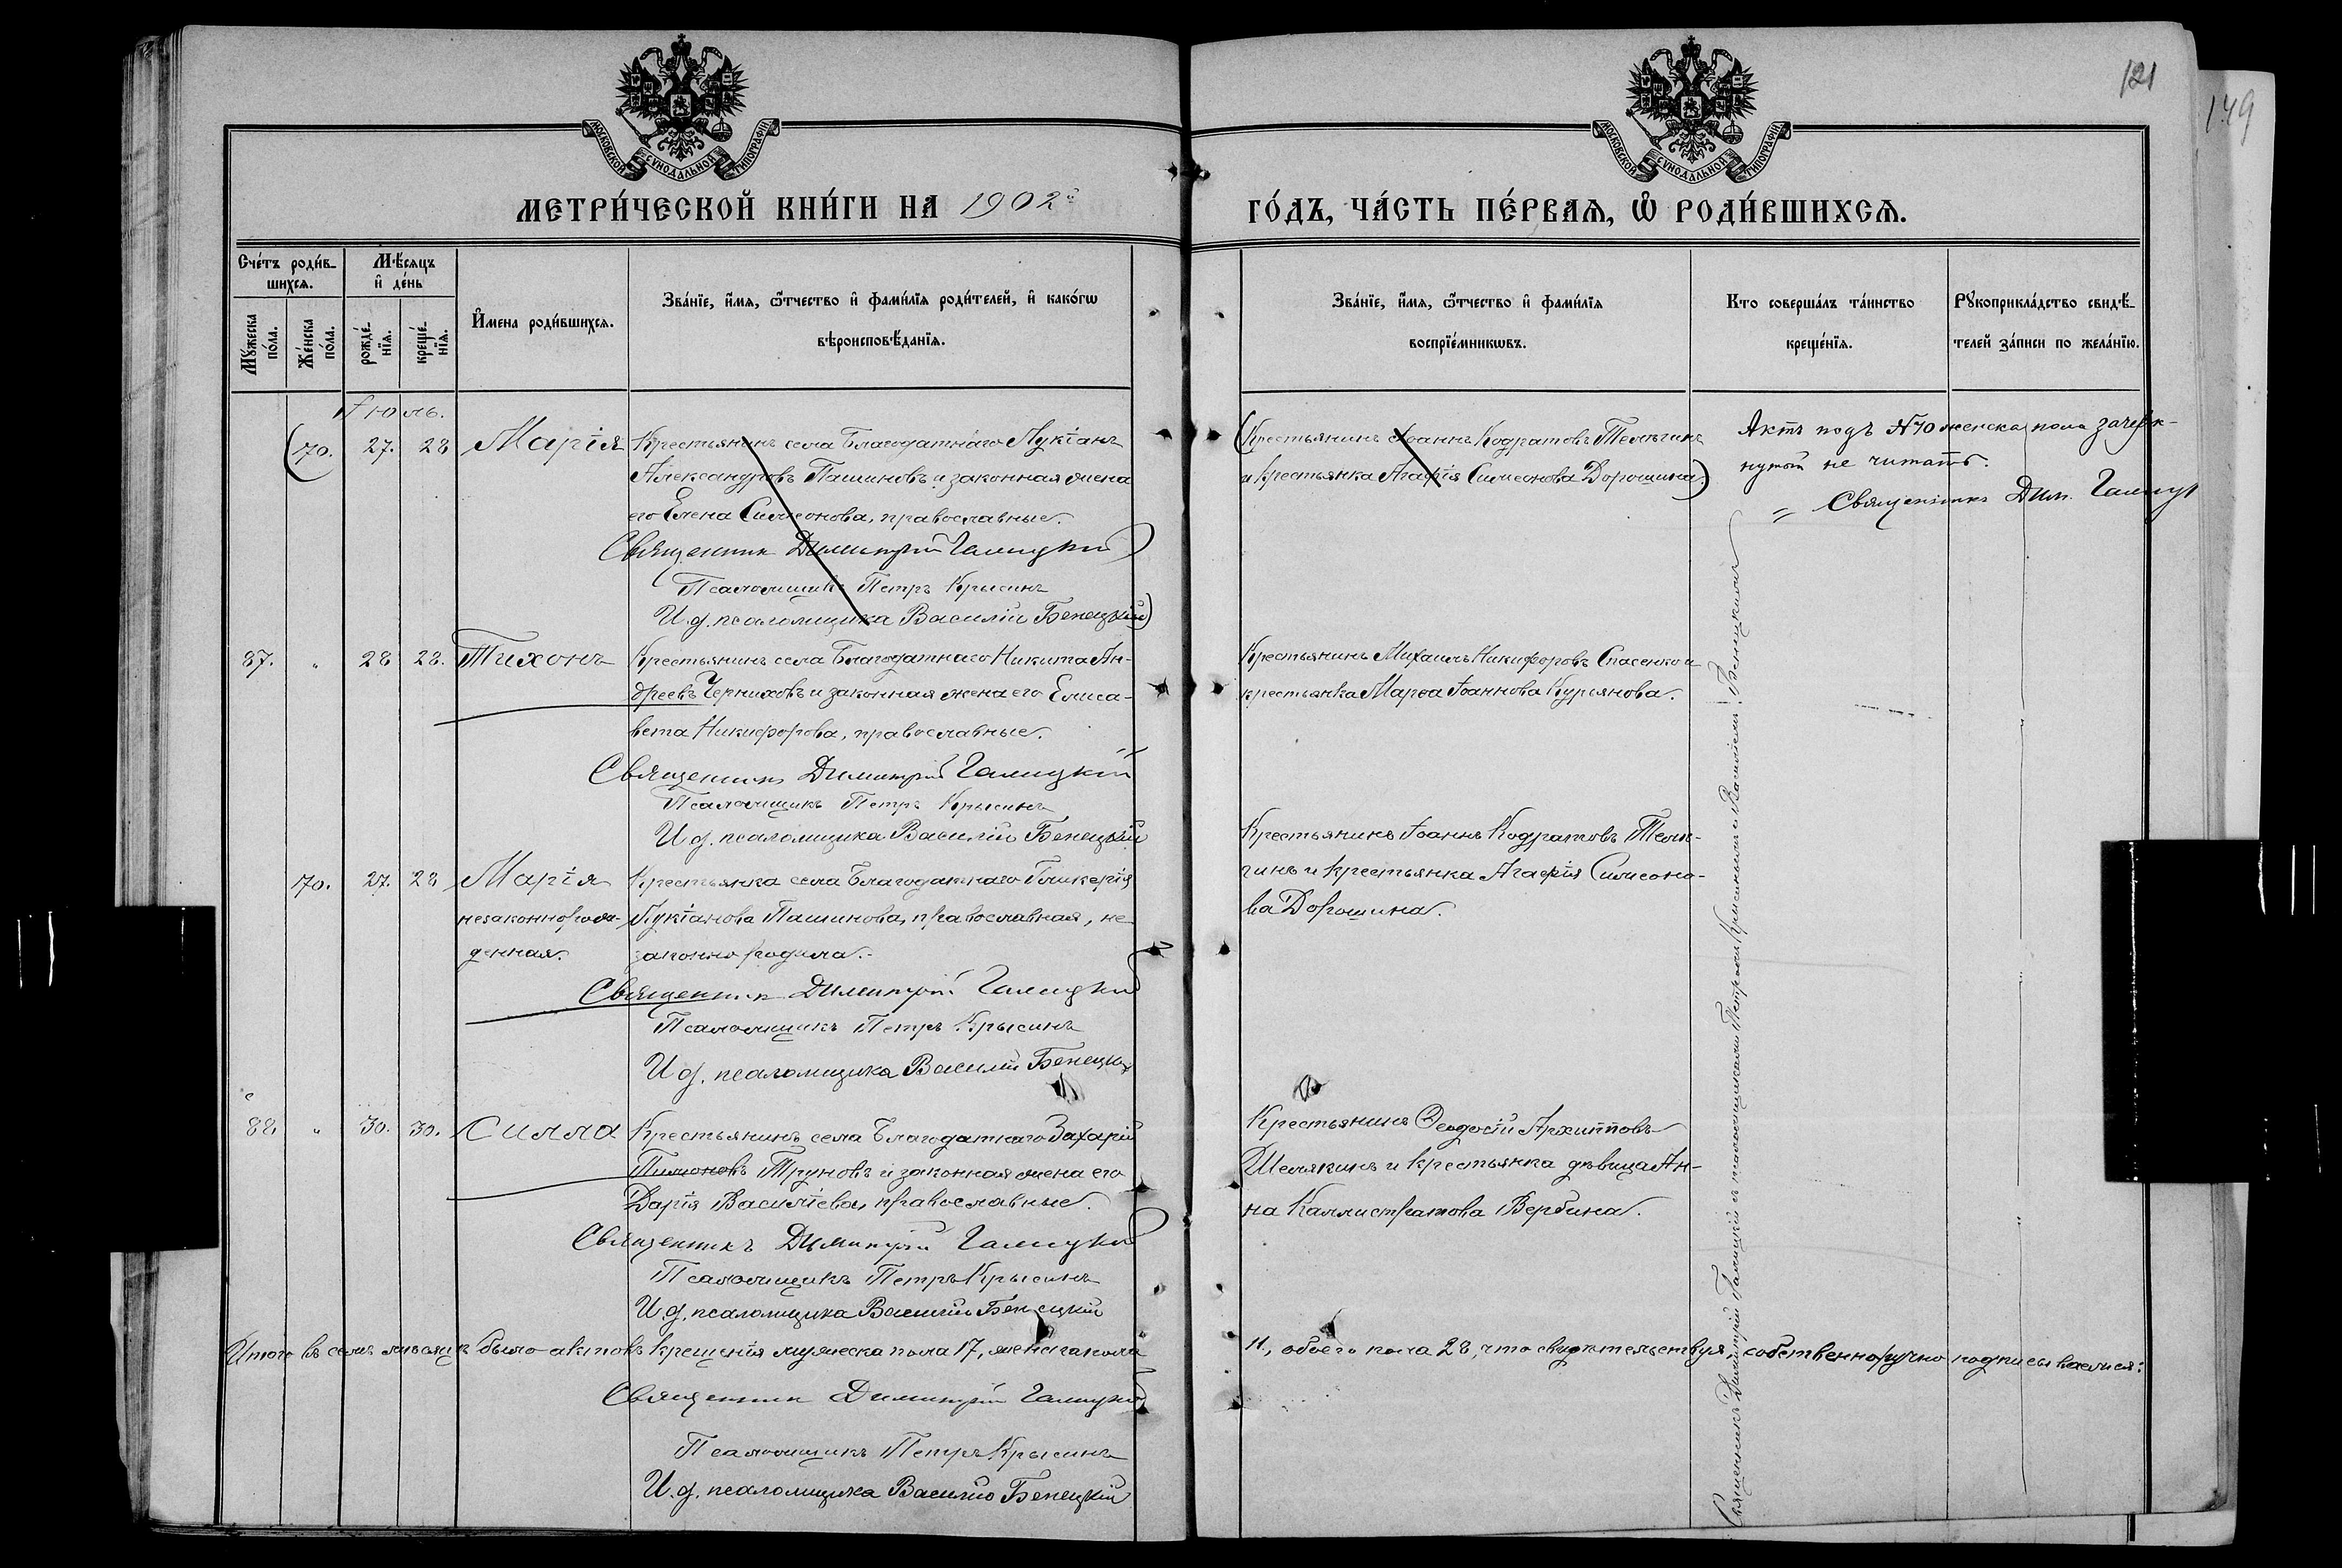 121
149
МОСКОВСКОЙ СѴНОДАЛЬНОЙ ТИПОГРАФІИ.
МОСКОВСКОЙ СѴНОДАЛЬНОЙ ТИПОГРАФІИ.
МЕТРИ́ЧЕСКОЙ КНИ́ГИ НА 1902й
ГО́ДЪ, ЧА́СТЬ ПЕ́РВАѦ, Ѽ РОДИ́ВШИХСѦ.
Сче́тъ роди́в-
шихсѧ.
Мꙋ́жеска
по́ла.
Же́нска
по́ла.
Мѣ́сѧцъ
и҆ де́нь
рожде́-
нїѧ.
креще́-
нїѧ.
И҆мена роди́вшихсѧ.
Зва́нїе, и҆́мѧ, ѻ҆́тчество и҆ фами́лїѧ роди́телей, и҆ како́гѡ
вѣроисповѣ́данїѧ.
Зва́нїе, и҆́мѧ, ѻ҆́тчество и҆ фами́лїѧ
воспрїе́мникѡвъ.
Кто соверша́лъ та́инство
креще́нїѧ.
Рꙋкоприкла́дство свидѣ́-
телей за́писи по жела́нїю.
Іюль.
(70. 27. 28 Марія
Крестьянинъ села Благодатнаго Лукіанъ
Александровъ Пашиновъ и законная жена
его Елена Симеонова, православные.
Священник Димитрій Галицкій)
(Псаломщикъ Петръ Крысинъ
И.д. псаломщика Василій Бенецкій)
(Крестьянинъ Іоаннъ Кодратовъ Телѣгинъ
и крестьянка Агафія Симеонова Дорошина.)
Актъ подъ №70 женска пола зачерк-
нутый не читать.
= Священникъ Дим.
87. " 28 28. Тихонъ
Крестьянинъ села Благодатнаго Никита Ан-
дреевъ Черниховъ и законная жена его Елиса-
вета Никифорова, православные.
Священникъ Димитрій Галицкій
Псаломщикъ Петръ Крысинъ
И.д. псаломщика Василій Бенецкій
Крестьянинъ Михаилъ Никифоровъ Спасенко и
крестьянка Марѳа Іоаннова Курьянова.
70. 27. 28 Марія
незаконнорож-
денная.
Крестьянка села Благодатнаго Гликерія
Лукіанова Пашинова, православная, не-
законно родила.
Священник Димитрій Галицкій
Псаломщикъ Петръ Крысинъ
И.д. псаломщика Василій Бенецкій
Крестьянинъ Іоаннъ Кодратовъ Телѣ-
гинъ и крестьянка Агафія Симеоно-
ва Дорошина.
88. " 30. 30. Силла
Крестьянинъ села Благодатнаго Захарій
Тимоновъ Труновъ и законная жена его
Дарія Василіева, православные.
Священникъ Димитрій Галицкій
Псаломщикъ Петръ Крысинъ
И.д. псаломщика Василій Бенецкій
Крестьянинъ Ѳеодосій Архипповъ
Шелякинъ и крестьянка дѣвица Ан-
на Каллистратова Вербина.
Священникъ Димитрій Галицкій съ псаломщиками Петромъ Крысинымъ и Василіемъ Бенецкимъ
Итого въ семъ мѣсяцѣ было актовъ крещенія мужеска пола 17, женска пола
11, обоего пола 28, что свидѣтельствуя, собственноручно подписываемся:
Священник Димитрій Галицкій
Псаломщикъ Петръ Крысинъ
И.д. псаломщика Василій Бенецкій